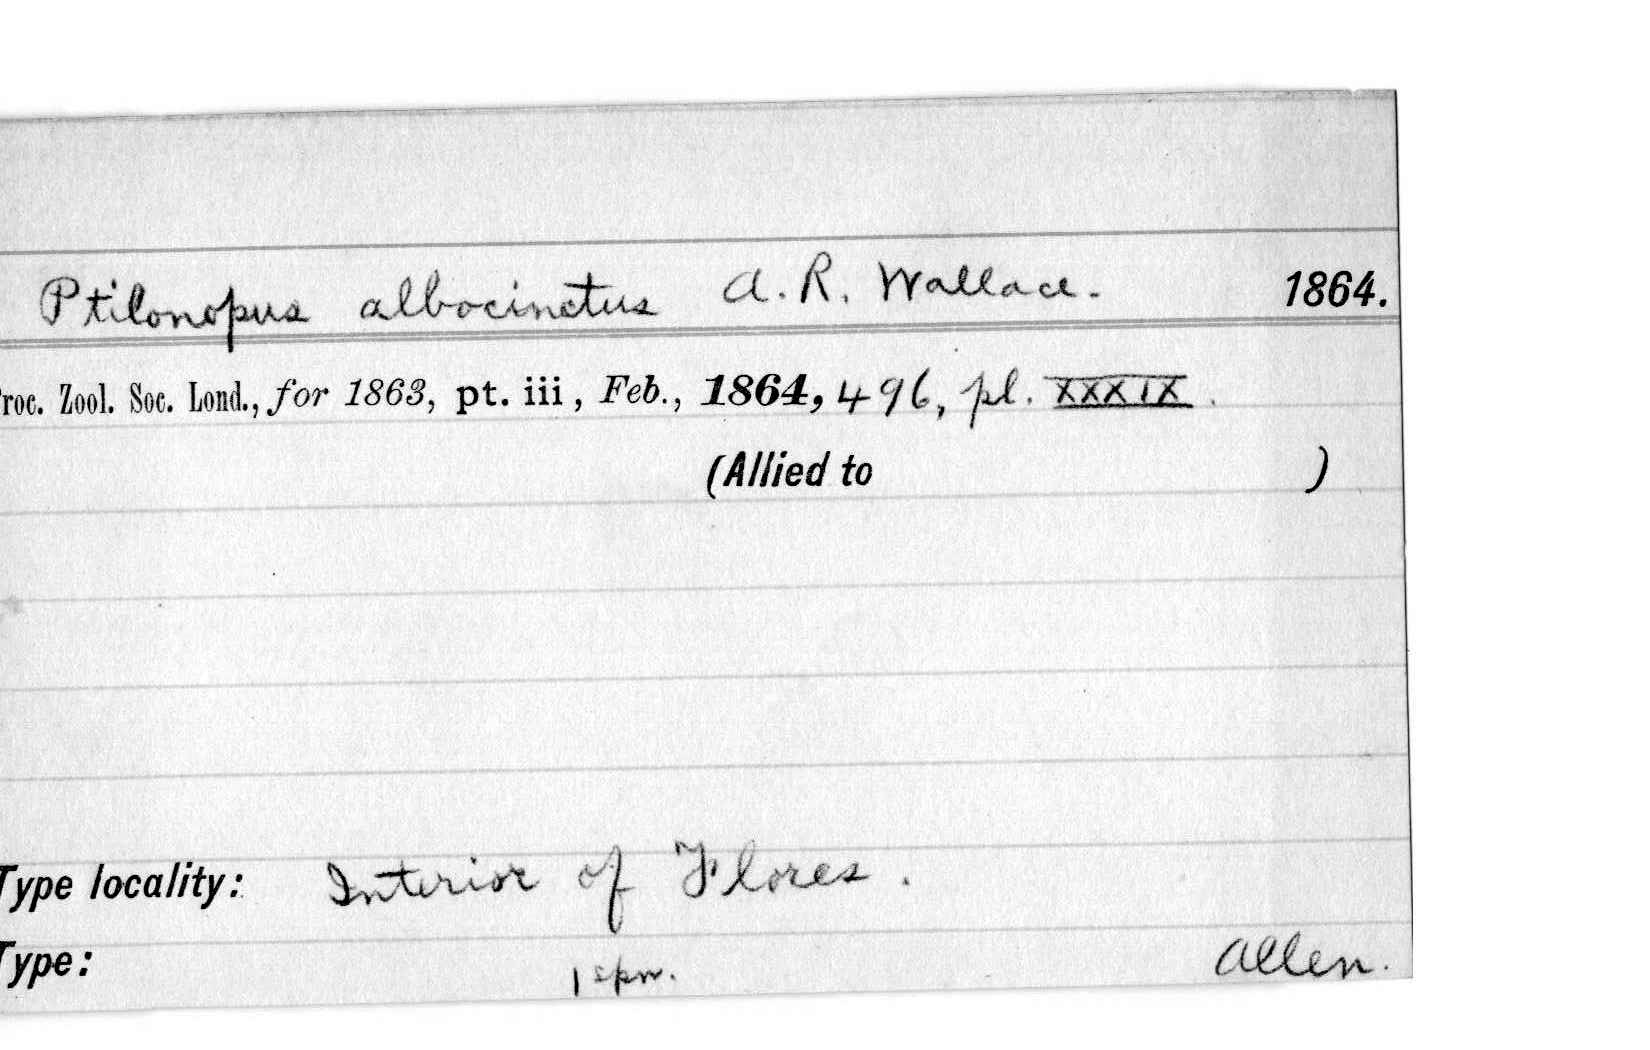 Ptilonopus albocinctus A. R. Wallace. 1864.
roc. Zool. Soc. Lond., for 1863, pt. iii, Feb., 1864, 496, pl. XXXIX.
(Allied to )
Type locality: Interior of Flores.
Type: 1 spm. Allen.